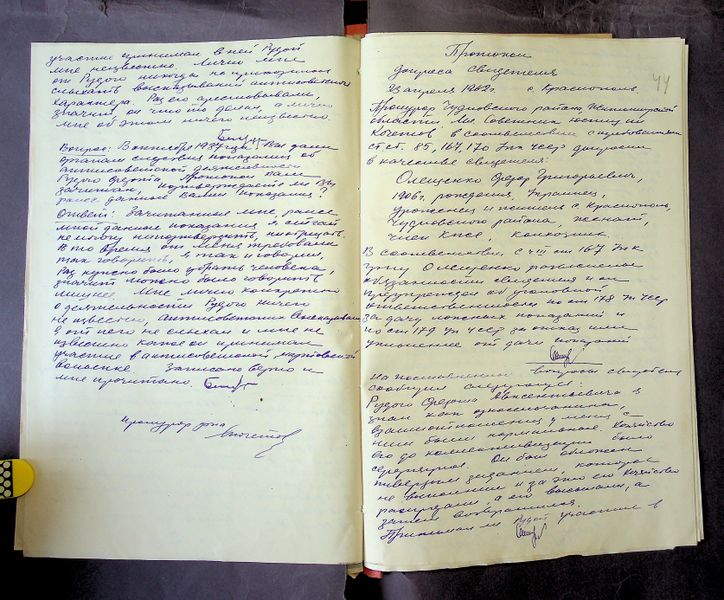 участие принимал в ней Рудой
мне неизвестно. Лично мне
от Рудого никогда не приходилось
слыхать высказываний антисоветского
характера. Раз его арестовывали,
значит он что-то делал, а лично
мне об этом ничего неизвестно.
Вопрос: В октябре 1937 года Вы дали
органам следствия показания об
антисоветской деятельности
Рудого Федота. Протокол Вам
зачитан. Подтверждаете ли Вы
ранее данные Вами показания?
Ответ: Зачитанные мне, ранее
мной данные показания я сейчас
не могу ни подтвердить, ни отрицать.
В то время от меня требовали
так говорить, я так и говорил.
Раз нужно было убрать человека,
значит можно было говорить
лишнее. Мне лично конкретно
о деятельности Рудого ничего
не известно. Антисоветских высказываний
я от него не слыхал и мне не
известно какое он принимал
участие в антисоветской мартовской
волынке. Записано верно и
мне прочитано.
Прокурор р-на
44
Протокол
допроса свидетеля
23 апреля 1962 г. с. Краснополь.
Прокурор Чудновского района, Житомирской
области, мл. советник юстиции
Кочетов, в соответствии с требованиями
ст. ст. 85, 167, 170 УПК УССР допросил
в качестве свидетеля:
Олещенко Федор Григорьевич,
1906 г. рождения, украинец,
уроженец и житель с. Краснополь,
Чудновского района, женат,
член КПСС, колхозник.
В соответствии с ч III ст 167 УПК
гр-ну Олещенко разъяснены
обязанности свидетеля и он
предупрежден об уголовной
ответственности по ст 178 УК УССР
за дачу ложных показаний и
по ст 179 УК УССР за отказ или
уклонение от дачи показаний
На поставленные вопросы свидетель
сообщил следующее:
Рудого Федота Авксентьевича я
знаю как односельчанина,
взаимоотношения у меня с
ним были нормальные. Хозяйство
его до коллективизации было
середняцкое. Он был обложен
твердым заданием, которое
не выполнил и за это его хозяйство
распродали, а его высылали, а
затем возвратился.
Принимал ли Рудой участие в